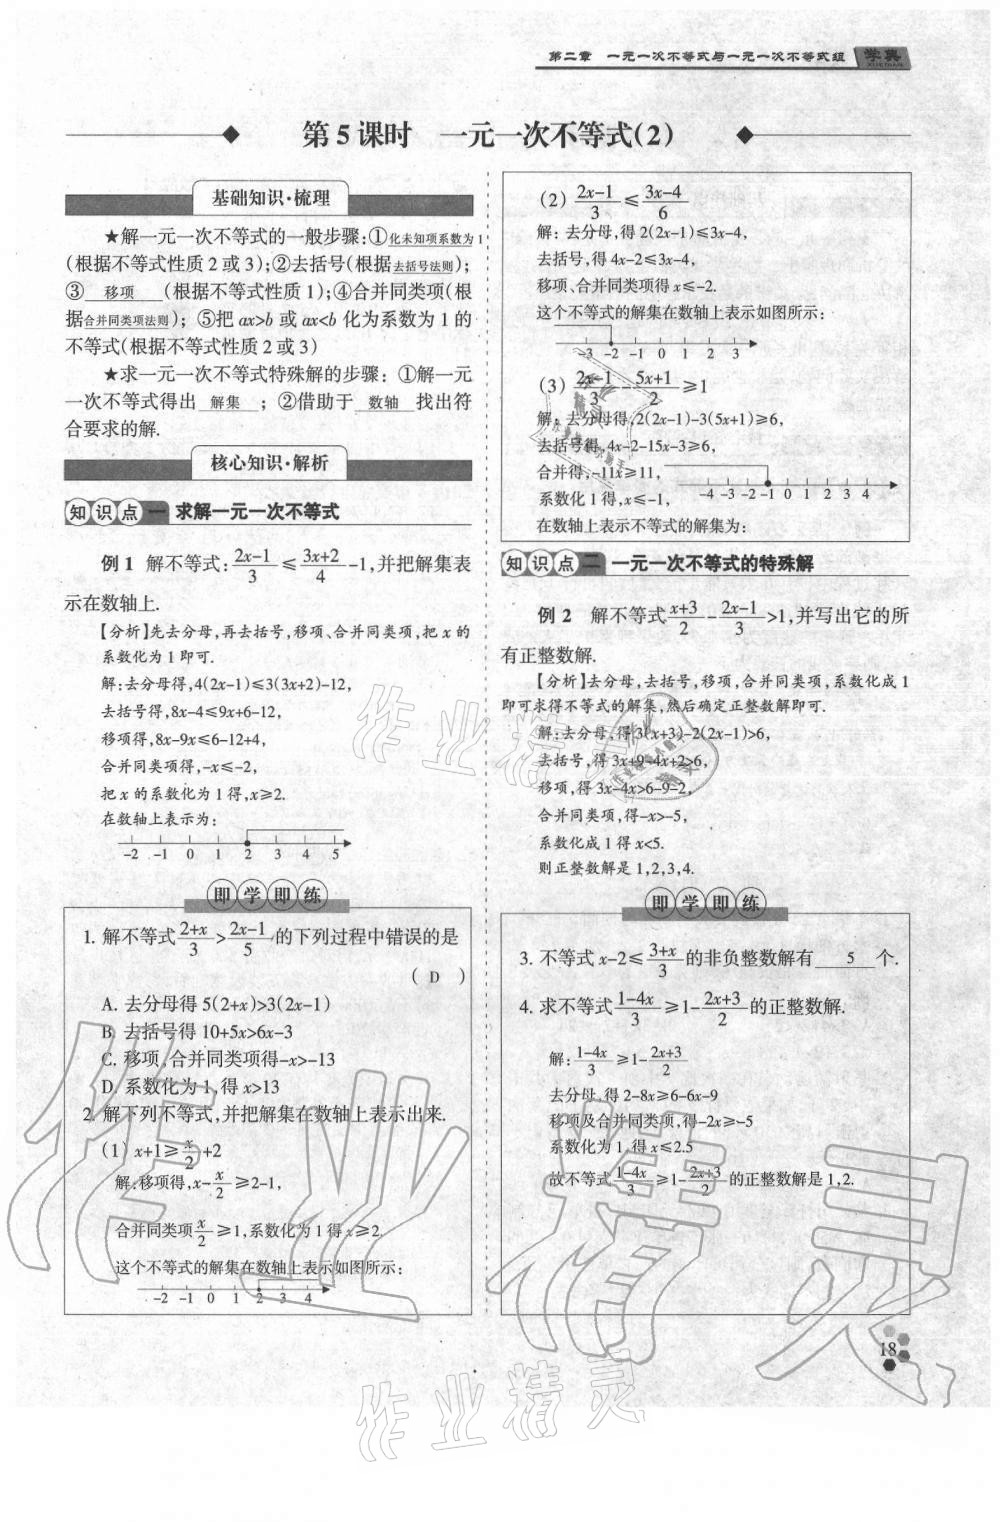 第二章 一元一次不等式与一元一次不等式组 学典
XUEDIAN
第5课时 一元一次不等式(2)
基础知识·梳理
★解一元一次不等式的一般步骤:①化未知项系数为1
(根据不等式性质2或3);②去括号(根据去括号法则);
③ 移项 (根据不等式性质1);④合并同类项(根
据合并同类项法则); ⑤把 ax>b 或 ax<b 化为系数为1的
不等式(根据不等式性质2或3)
★求一元一次不等式特殊解的步骤: ①解一元
一次不等式得出 解集 ; ②借助于 数轴 找出符
合要求的解.
核心知识·解析
知识点一 求解一元一次不等式
例1 解不等式: (2x-1)/3 ≤ (3x+2)/4 -1,并把解集表
示在数轴上.
【分析】先去分母,再去括号,移项、合并同类项,把 x 的
系数化为1即可.
解:去分母得,4(2x-1)≤3(3x+2)-12,
去括号得,8x-4≤9x+6-12,
移项得,8x-9x≤6-12+4,
合并同类项得,-x≤-2,
把 x 的系数化为1得,x≥2.
在数轴上表示为:
-2 -1 0 1 2 3 4 5
即学即练
1. 解不等式 (2+x)/3 > (2x-1)/5 的下列过程中错误的是
( D )
A. 去分母得 5(2+x)>3(2x-1)
B. 去括号得 10+5x>6x-3
C. 移项,合并同类项得-x>-13
D. 系数化为1,得 x>13
2. 解下列不等式,并把解集在数轴上表示出来.
(1) x+1≥ x/2 +2
解:移项得,x- x/2 ≥2-1,
合并同类项 x/2 ≥1,系数化为1得 x≥2.
这个不等式的解集在数轴上表示如图所示:
-2 -1 0 1 2 3 4
(2) (2x-1)/3 ≤ (3x-4)/6
解: 去分母,得 2(2x-1)≤3x-4,
去括号,得 4x-2≤3x-4,
移项、合并同类项得 x≤-2.
这个不等式的解集在数轴上表示如图所示:
-3 -2 -1 0 1 2 3
(3) (2x-1)/3 - (5x+1)/2 ≥1
解: 去分母得,2(2x-1)-3(5x+1)≥6,
去括号得,4x-2-15x-3≥6,
合并得,-11x≥11,
系数化1得,x≤-1,
-4 -3 -2 -1 0 1 2 3 4
在数轴上表示不等式的解集为:
知识点二 一元一次不等式的特殊解
例2 解不等式 (x+3)/2 - (2x-1)/3 >1,并写出它的所
有正整数解.
【分析】去分母,去括号,移项,合并同类项,系数化成1
即可求得不等式的解集,然后确定正整数解即可.
解:去分母,得3(x+3)-2(2x-1)>6,
去括号,得3x+9-4x+2>6,
移项,得 3x-4x>6-9-2,
合并同类项,得-x>-5,
系数化成1得x<5.
则正整数解是1,2,3,4.
即学即练
3. 不等式 x-2≤ (3+x)/3 的非负整数解有 5 个.
4. 求不等式 (1-4x)/3 ≥1- (2x+3)/2 的正整数解.
解: (1-4x)/3 ≥1- (2x+3)/2
去分母,得 2-8x≥6-6x-9
移项及合并同类项,得-2x≥-5
系数化为1,得 x≤2.5
故不等式 (1-4x)/3 ≥1- (2x+3)/2 的正整数解是1,2.
18
作业精灵
作业精灵
作业精灵